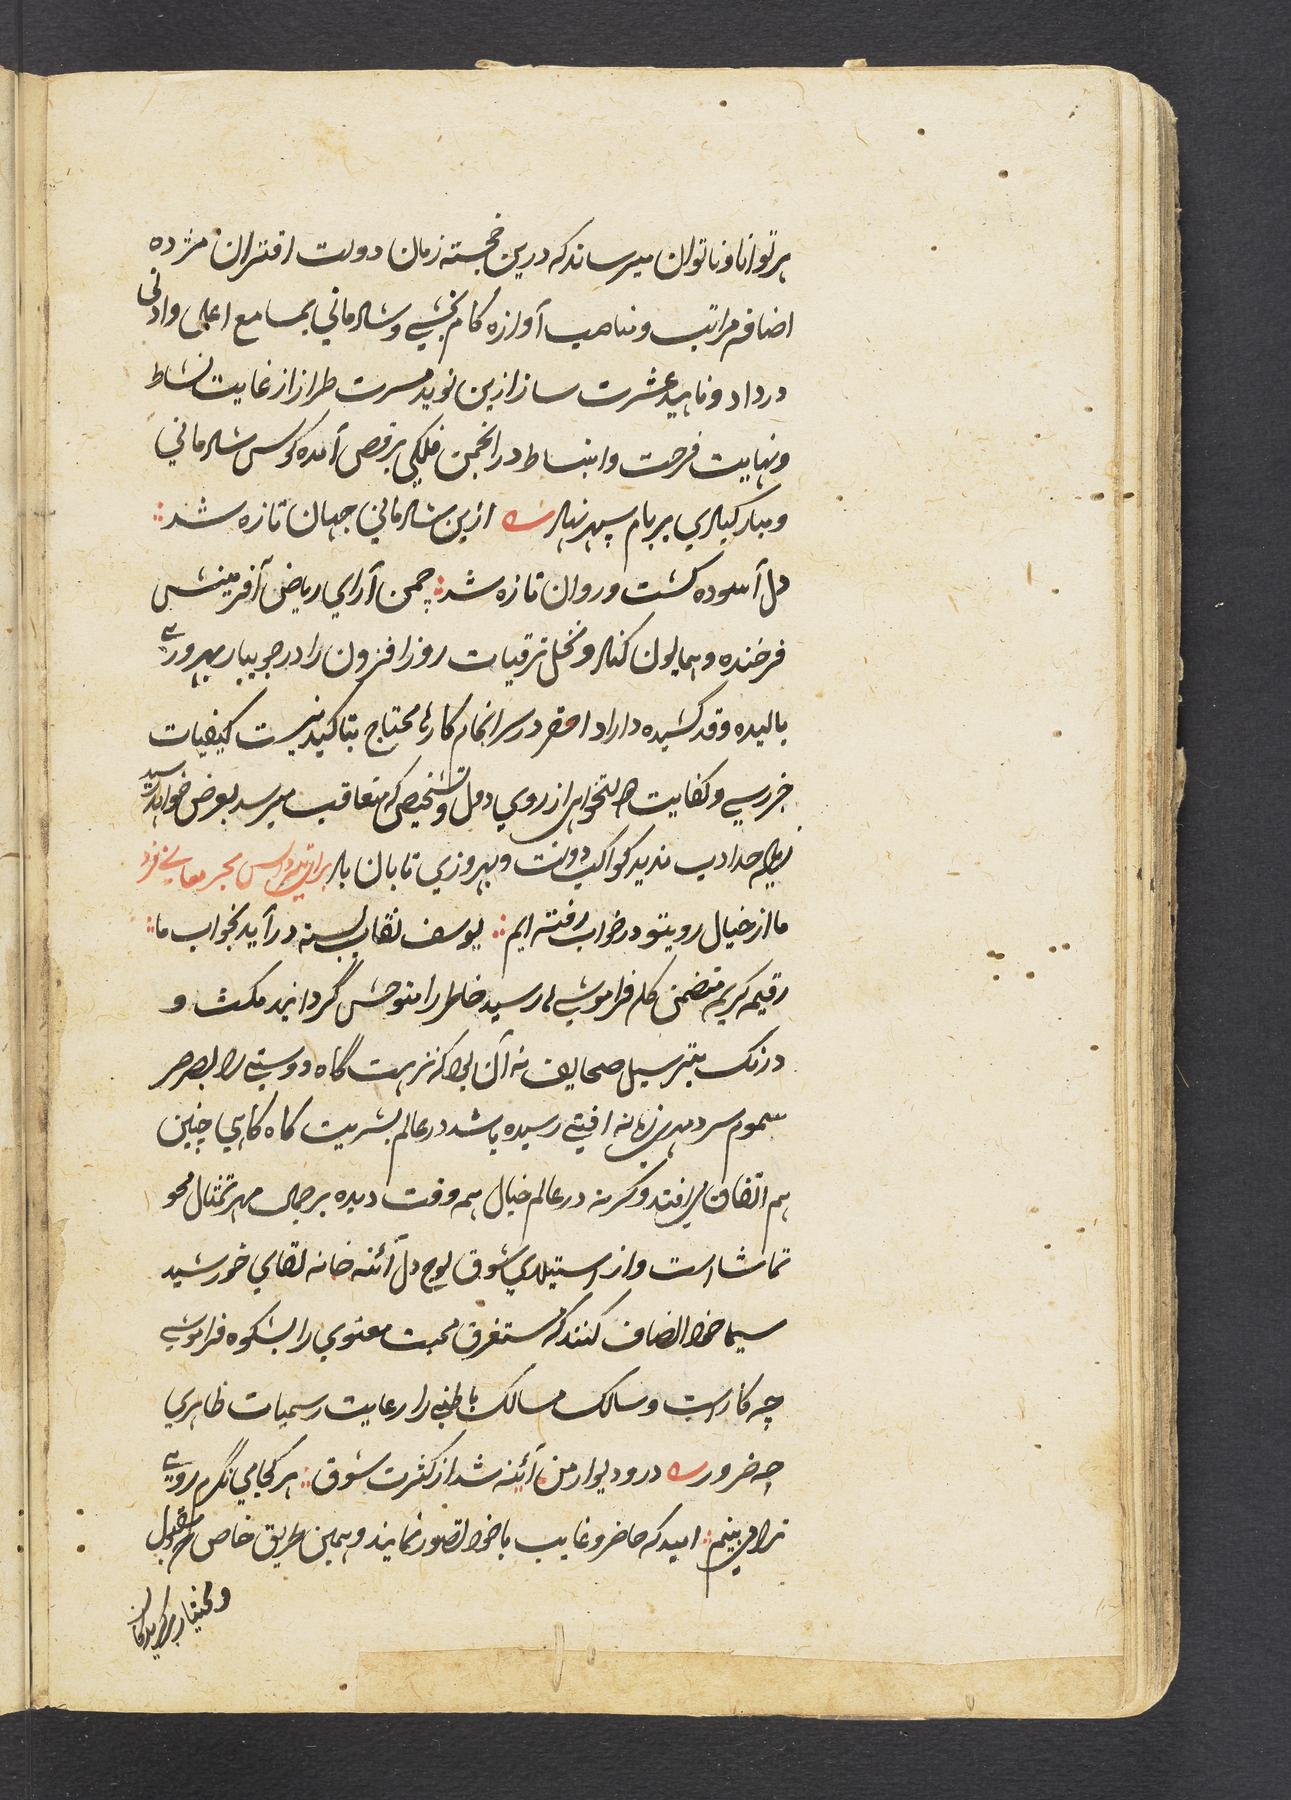 هر توانا و ناتوان میرساند که درین خجسته زمان دولت اقتران مژده
اضافه مراتب و مناصب آوازه کام بخشی و شادمانی بمسامع اعلی و ادنی
در داد و ناهید عشرت ساز ازین نوید مسرت طراز از غایت نشاط
و نهایت فرحت و انبساط در انجمن فلکی برقص آمده کوس شادمانی
و مبارکبادی بر بام سپهر نهاد ازین شادمانی جهان تازه شد
دل آسوده کشت و روان تازه شد چمن آرای ریاض آفرینش
فرخنده و همایون کناد و نخل ترقیات روز افزون را در جویبار بهروزی
بالیده و قد کشیده داراد احقر در سرانجام کارها محتاج بتاکید نیست کیفیات
خبررسی و کفایت دولتخواهی از روی دول و تشخیص که متعاقب میرسد بعرض خواهد رسید
زیاده حد ادب ندید کواکب دولت و بهروزی تابان باد
ما از خیال روی تو در خواب رفته ایم یوسف نقاب بسته در آید بخواب ما
رقیمه کریمه متضمن کله فراموشی ها رسید خاطر را متوحش گردانید مکث و
درنک بترسیل صحایف نه آن بود که نزهت گاه دوستی را بصرصر
سموم سرد مهری زمانه افتی رسیده باشد در عالم بشریت کاه کاهی چنین
هم اتفاق می افتد و کرنه در عالم خیال همه وقت دیده بر جمال مهر تمثال محو
تماشا است و از استیلای شوق لوح دل آئنه خانه لقای خورشید
سیما خود انصاف کنند که مستغرق محبت معنوی را بشکوه فراموشی
چه کار است و سالک مسالک باطنی را رعایت رسمیات ظاهری
چه ضرور در و دیوار من آئینه شد از کثرت شوق هر کجا می نگرم روی
ترا می بینم امید که حاضر و غایب با خود تصور نمایند و همین طریق خاص مقبول